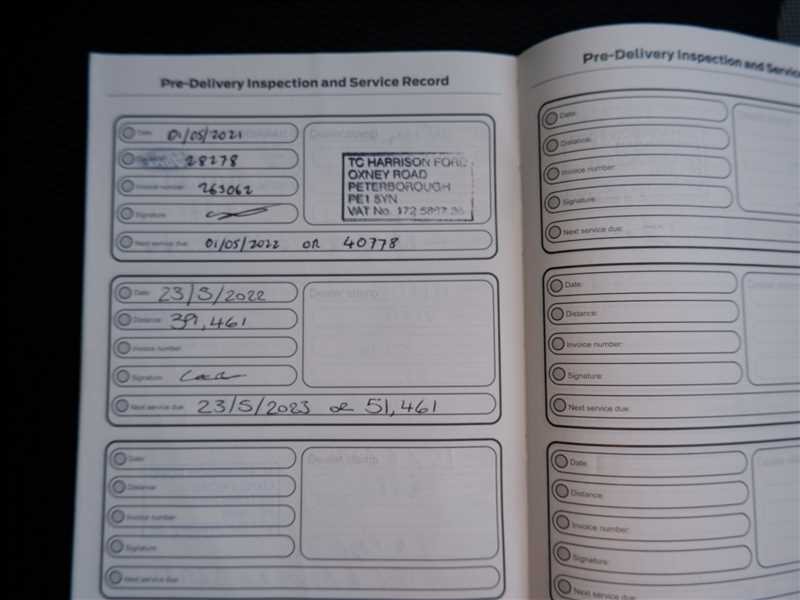 Pre-Delivery Inspection and Service Record
Date: 01/05/2021
28278
Invoice number: 263062
Signature:
Next service due: 01/05/2022 OR 40778
Dealer stamp
TC HARRISON FORD
OXNEY ROAD
PETERBOROUGH
PE1 5YN
VAT No. 172 5897 36
Date: 23/5/2022
Distance: 39,461
Invoice number:
Signature:
Next service due: 23/5/2023 or 51,461
Dealer stamp
Date:
Distance:
Invoice number:
Signature:
Next service due:
Dealer stamp
Pre-Delivery Inspection and Service
Date:
Distance:
Invoice number:
Signature:
Next service due:
Date:
Distance:
Invoice number:
Signature:
Next service due:
Date:
Distance:
Invoice number:
Signature:
Next service due: